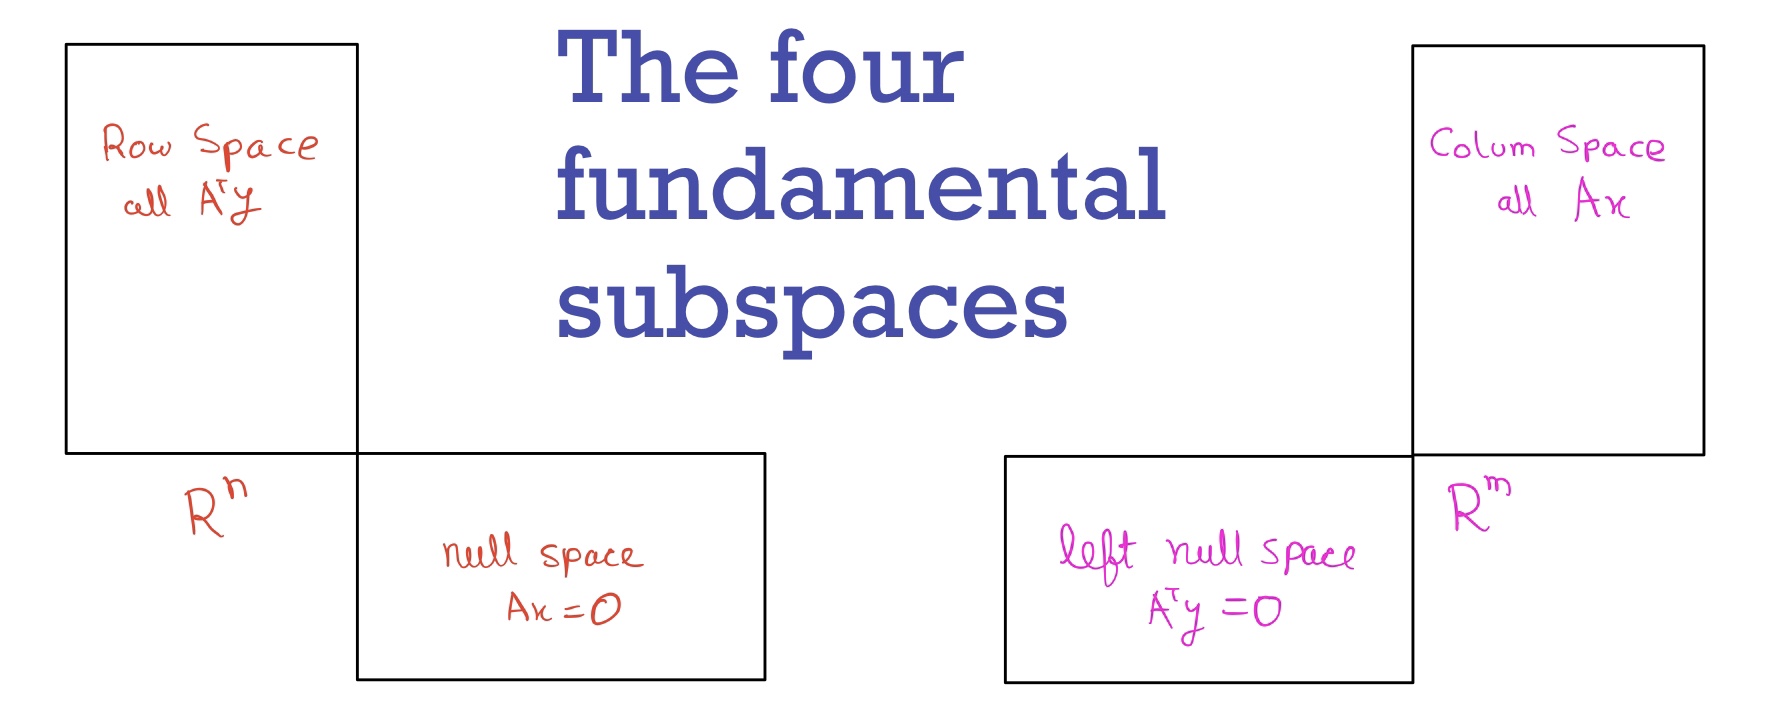 The four
fundamental
subspaces
Row Space
all Aᵀy
Rⁿ
null space
Ax=0
Colum Space
all Ax
Rᵐ
left null space
Aᵀy=0